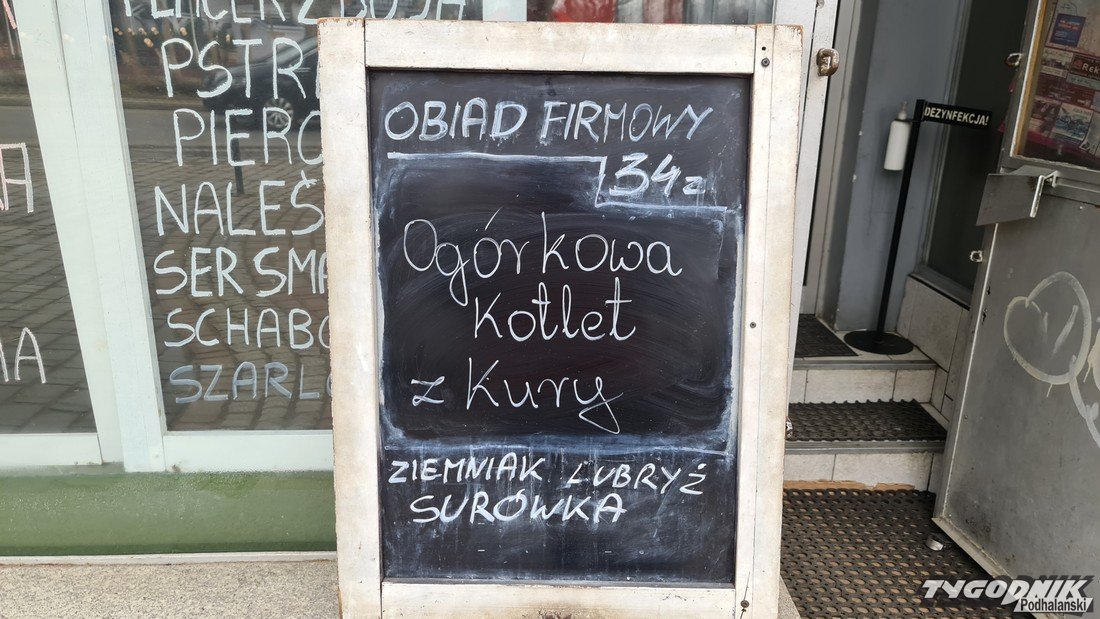 PSTR
PIERO
NALEŚ
SER SMA
SCHABO
SZARL
OBIAD FIRMOWY
34 z
Ogórkowa
Kotlet
z Kury
ZIEMNIAK LUBRYŹ
SURÓWKA
DEZYNFEKCJA!
TYGODNIK
Podhalański